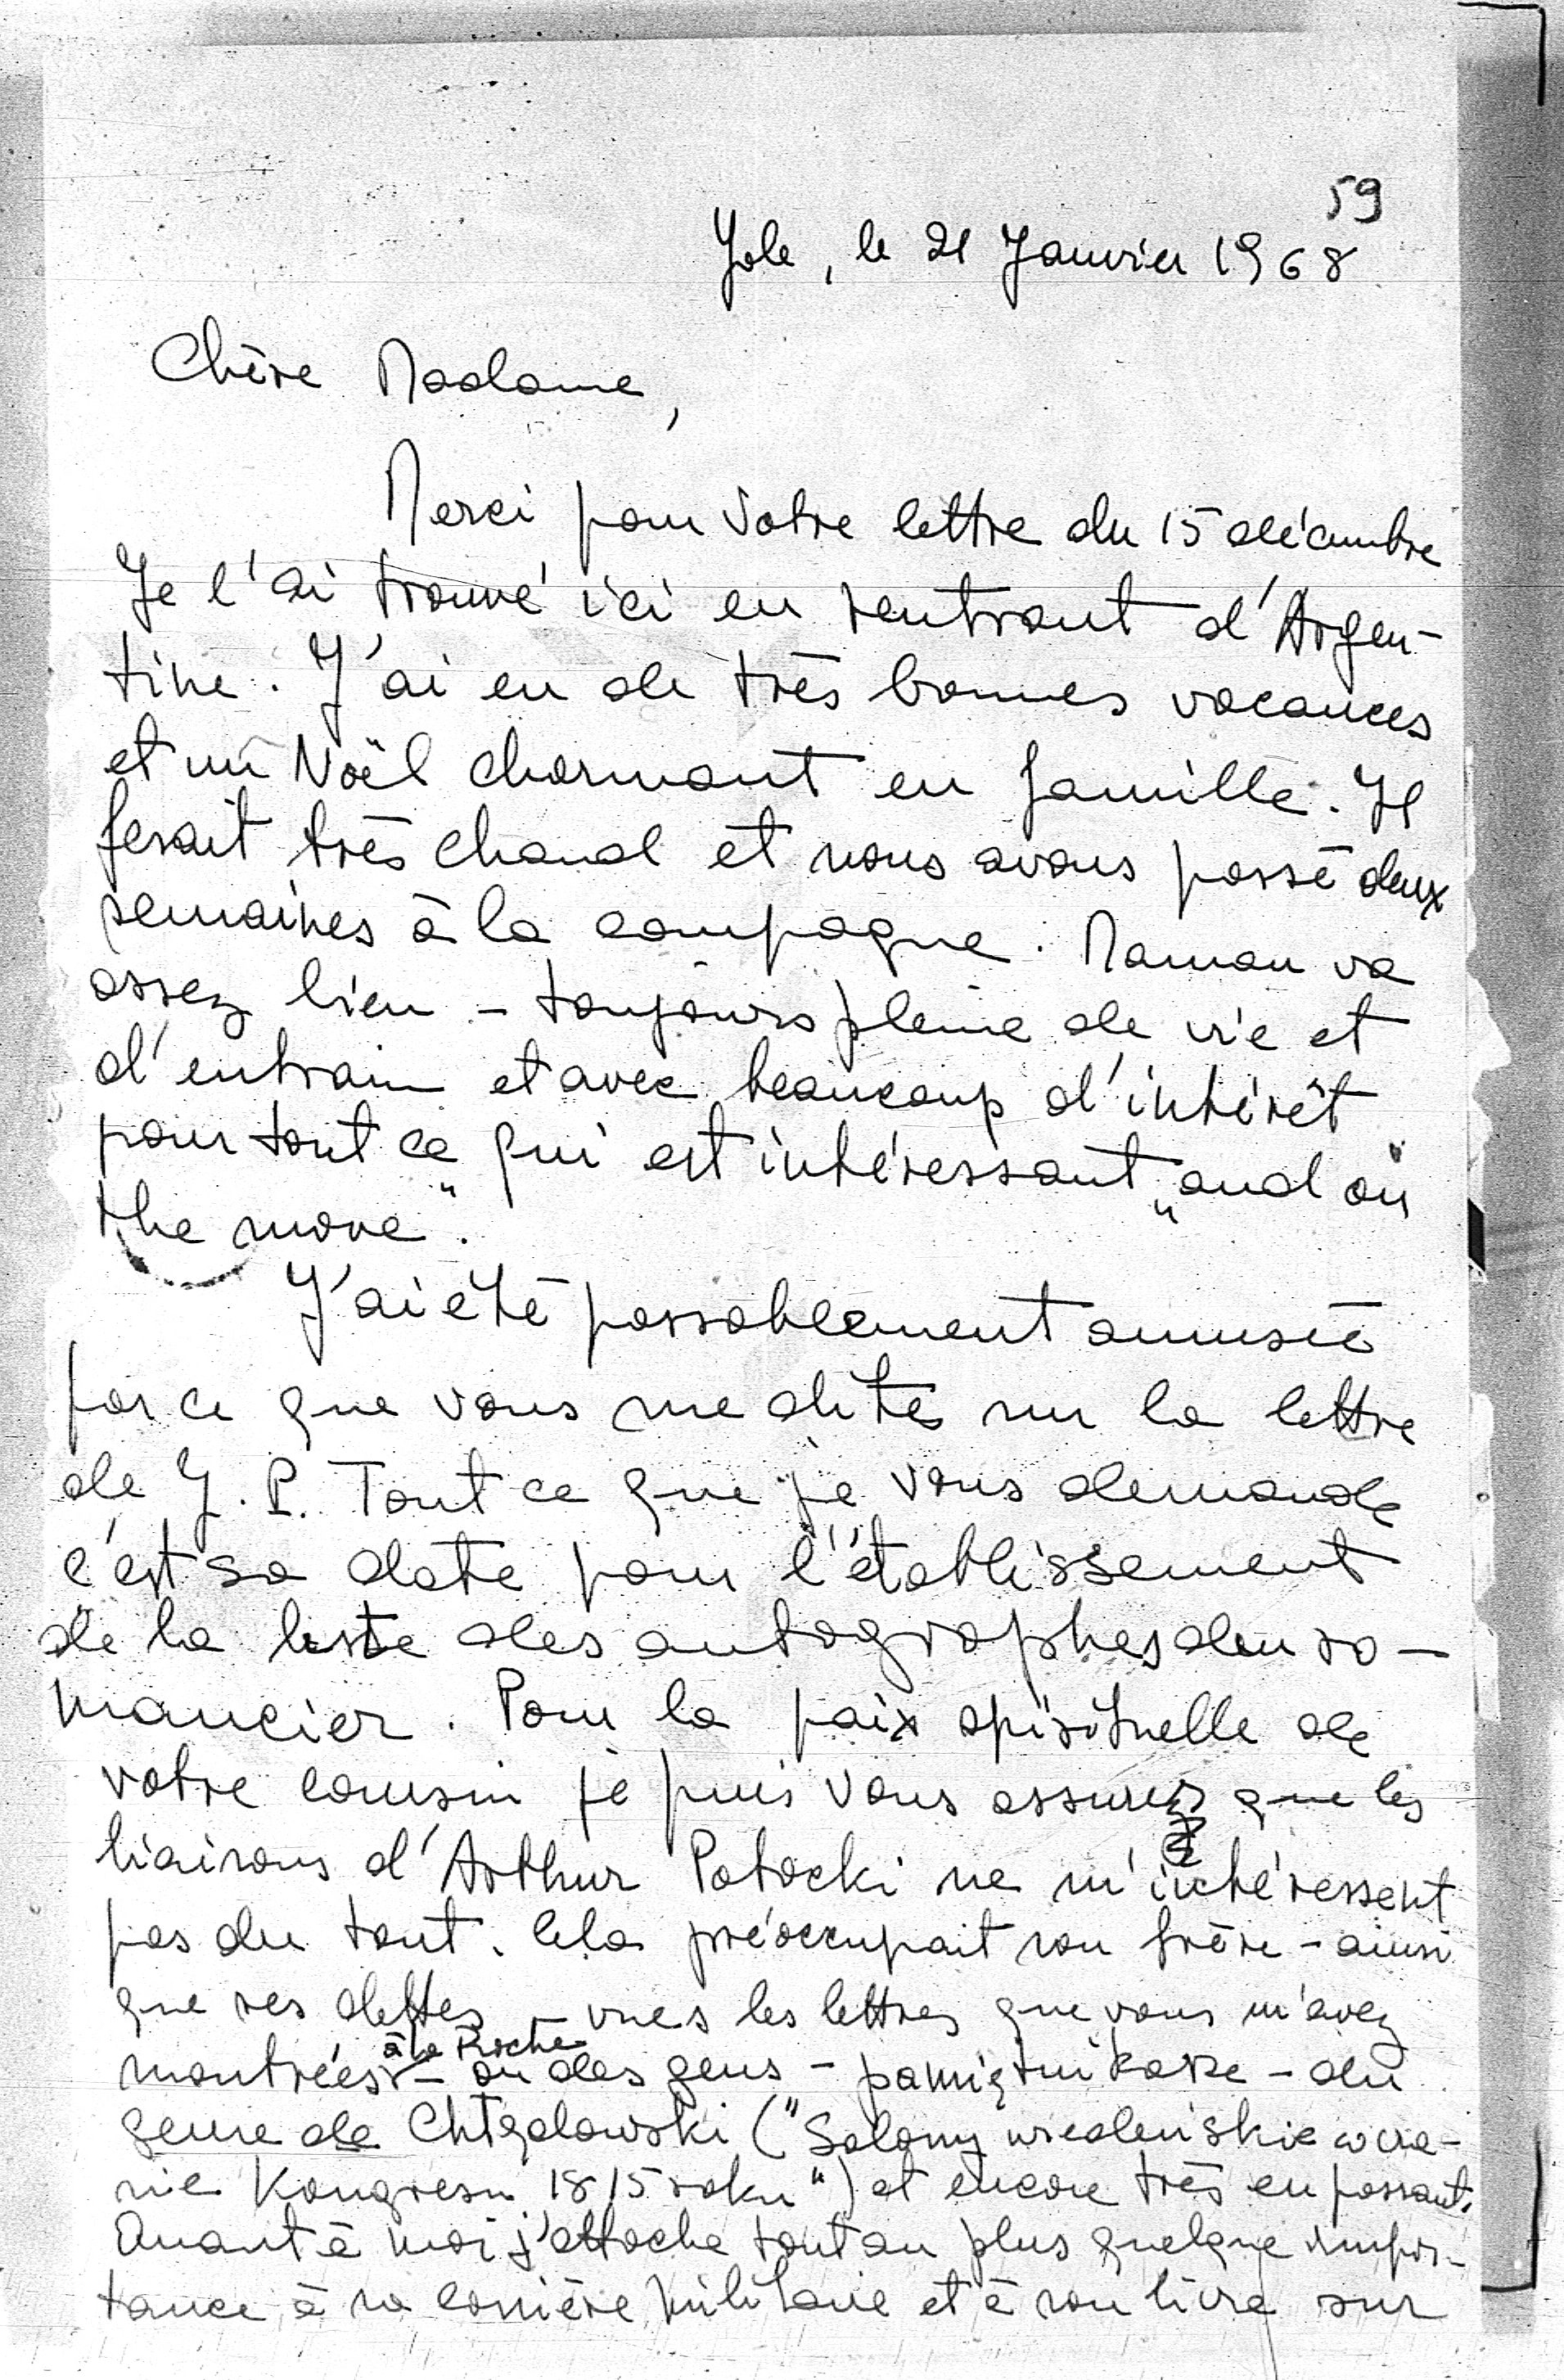 59
Yole, le 21 Janvier 1968
Chère Madame,
Merci pour Votre lettre du 15 décembre
Je l'ai trouvé ici en rentrant d'Argen-
tine. J'ai eu de très bonnes vacances
et un Noël charmant en famille. Il
fesait très chaud et nous avons passé deux
semaines à la campagne. Maman va
assez bien - toujours pleine de vie et
d'entrain et avec beaucoup d'intérêt
pour tout ce qui est intéressant „and on
the move".
J'ai été passablement amusée
par ce que vous me dites sur la lettre
de J. P. Tout ce que je vous demande
c'est sa date pour l'établissement
de la liste des autographes du ro-
mancier. Pour la paix spirituelle de
votre cousin je puis vous assurer que les
liaisons d'Arthur Potocki ne m'intéressent
pas du tout. Cela préoccupait son frère - ainsi
que ses dettes - vues les lettres que vous m'avez
à la Roche
montrées - ou des gens - pamiętnikarze - du
genre de Chłędowski ("Salony wiedeńskie w cza-
sie Kongresu 1815 roku") et encore très en passant.
Quant à moi j'attache tout au plus quelque impor-
tance à sa carrière militaire et à son livre sur